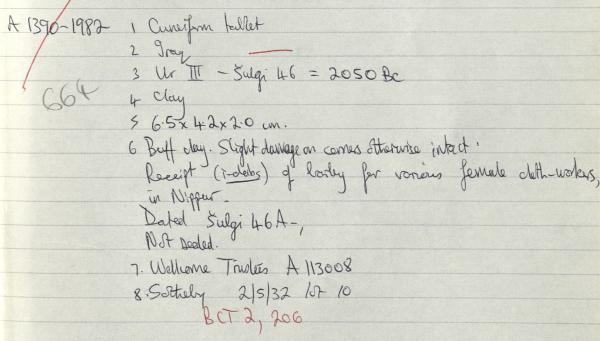 A 1390-1982 1 Cuneiform tablet
2 Iraq
3 Ur III - Šulgi 46 = 2050 BC
664
4 Clay
5 6.5 x 4.2 x 2.0 cm.
6 Buff clay. Slight damage on corners otherwise intact.
Receipt (ì-dab5) of barley for various female cloth-workers,
in Nippur.
Dated Šulgi 46A-,
Not sealed.
7. Wellcome Trustees A 113008
8. Sotheby 2/5/32 lot 10
BCT 2, 206